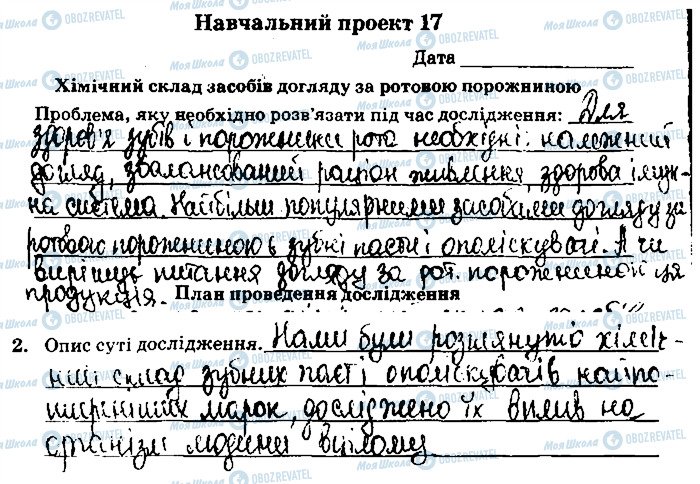 Навчальний проект 17
Дата
Хімічний склад засобів догляду за ротовою порожниною
Проблема, яку необхідно розв'язати під час дослідження: Для
здоров'я зубів і порожнини рота необхідні: належний
догляд, збалансований раціон живлення, здорова імун-
на система. Найбільш популярними засобами догляду за
ротовою порожниною є зубні пасти і ополіскувачі. А чи
вирішує питання догляду за рот. порожниной ця
продукція. План проведення дослідження
2. Опис суті дослідження. Нами були розглянуто хіміч-
ний склад зубних паст і ополіскувачів найпо-
ширеніших марок, досліджено їх вплив на
організм людини вцілому